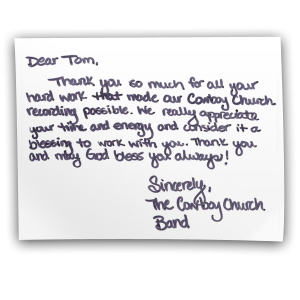 Dear Tom,
Thank you so much for all your
hard work that made our Cowboy Church
recording possible. We really appreciate
your time and energy and consider it a
blessing to work with you. Thank you
and may God bless you always!
Sincerely,
The Cowboy Church
Band